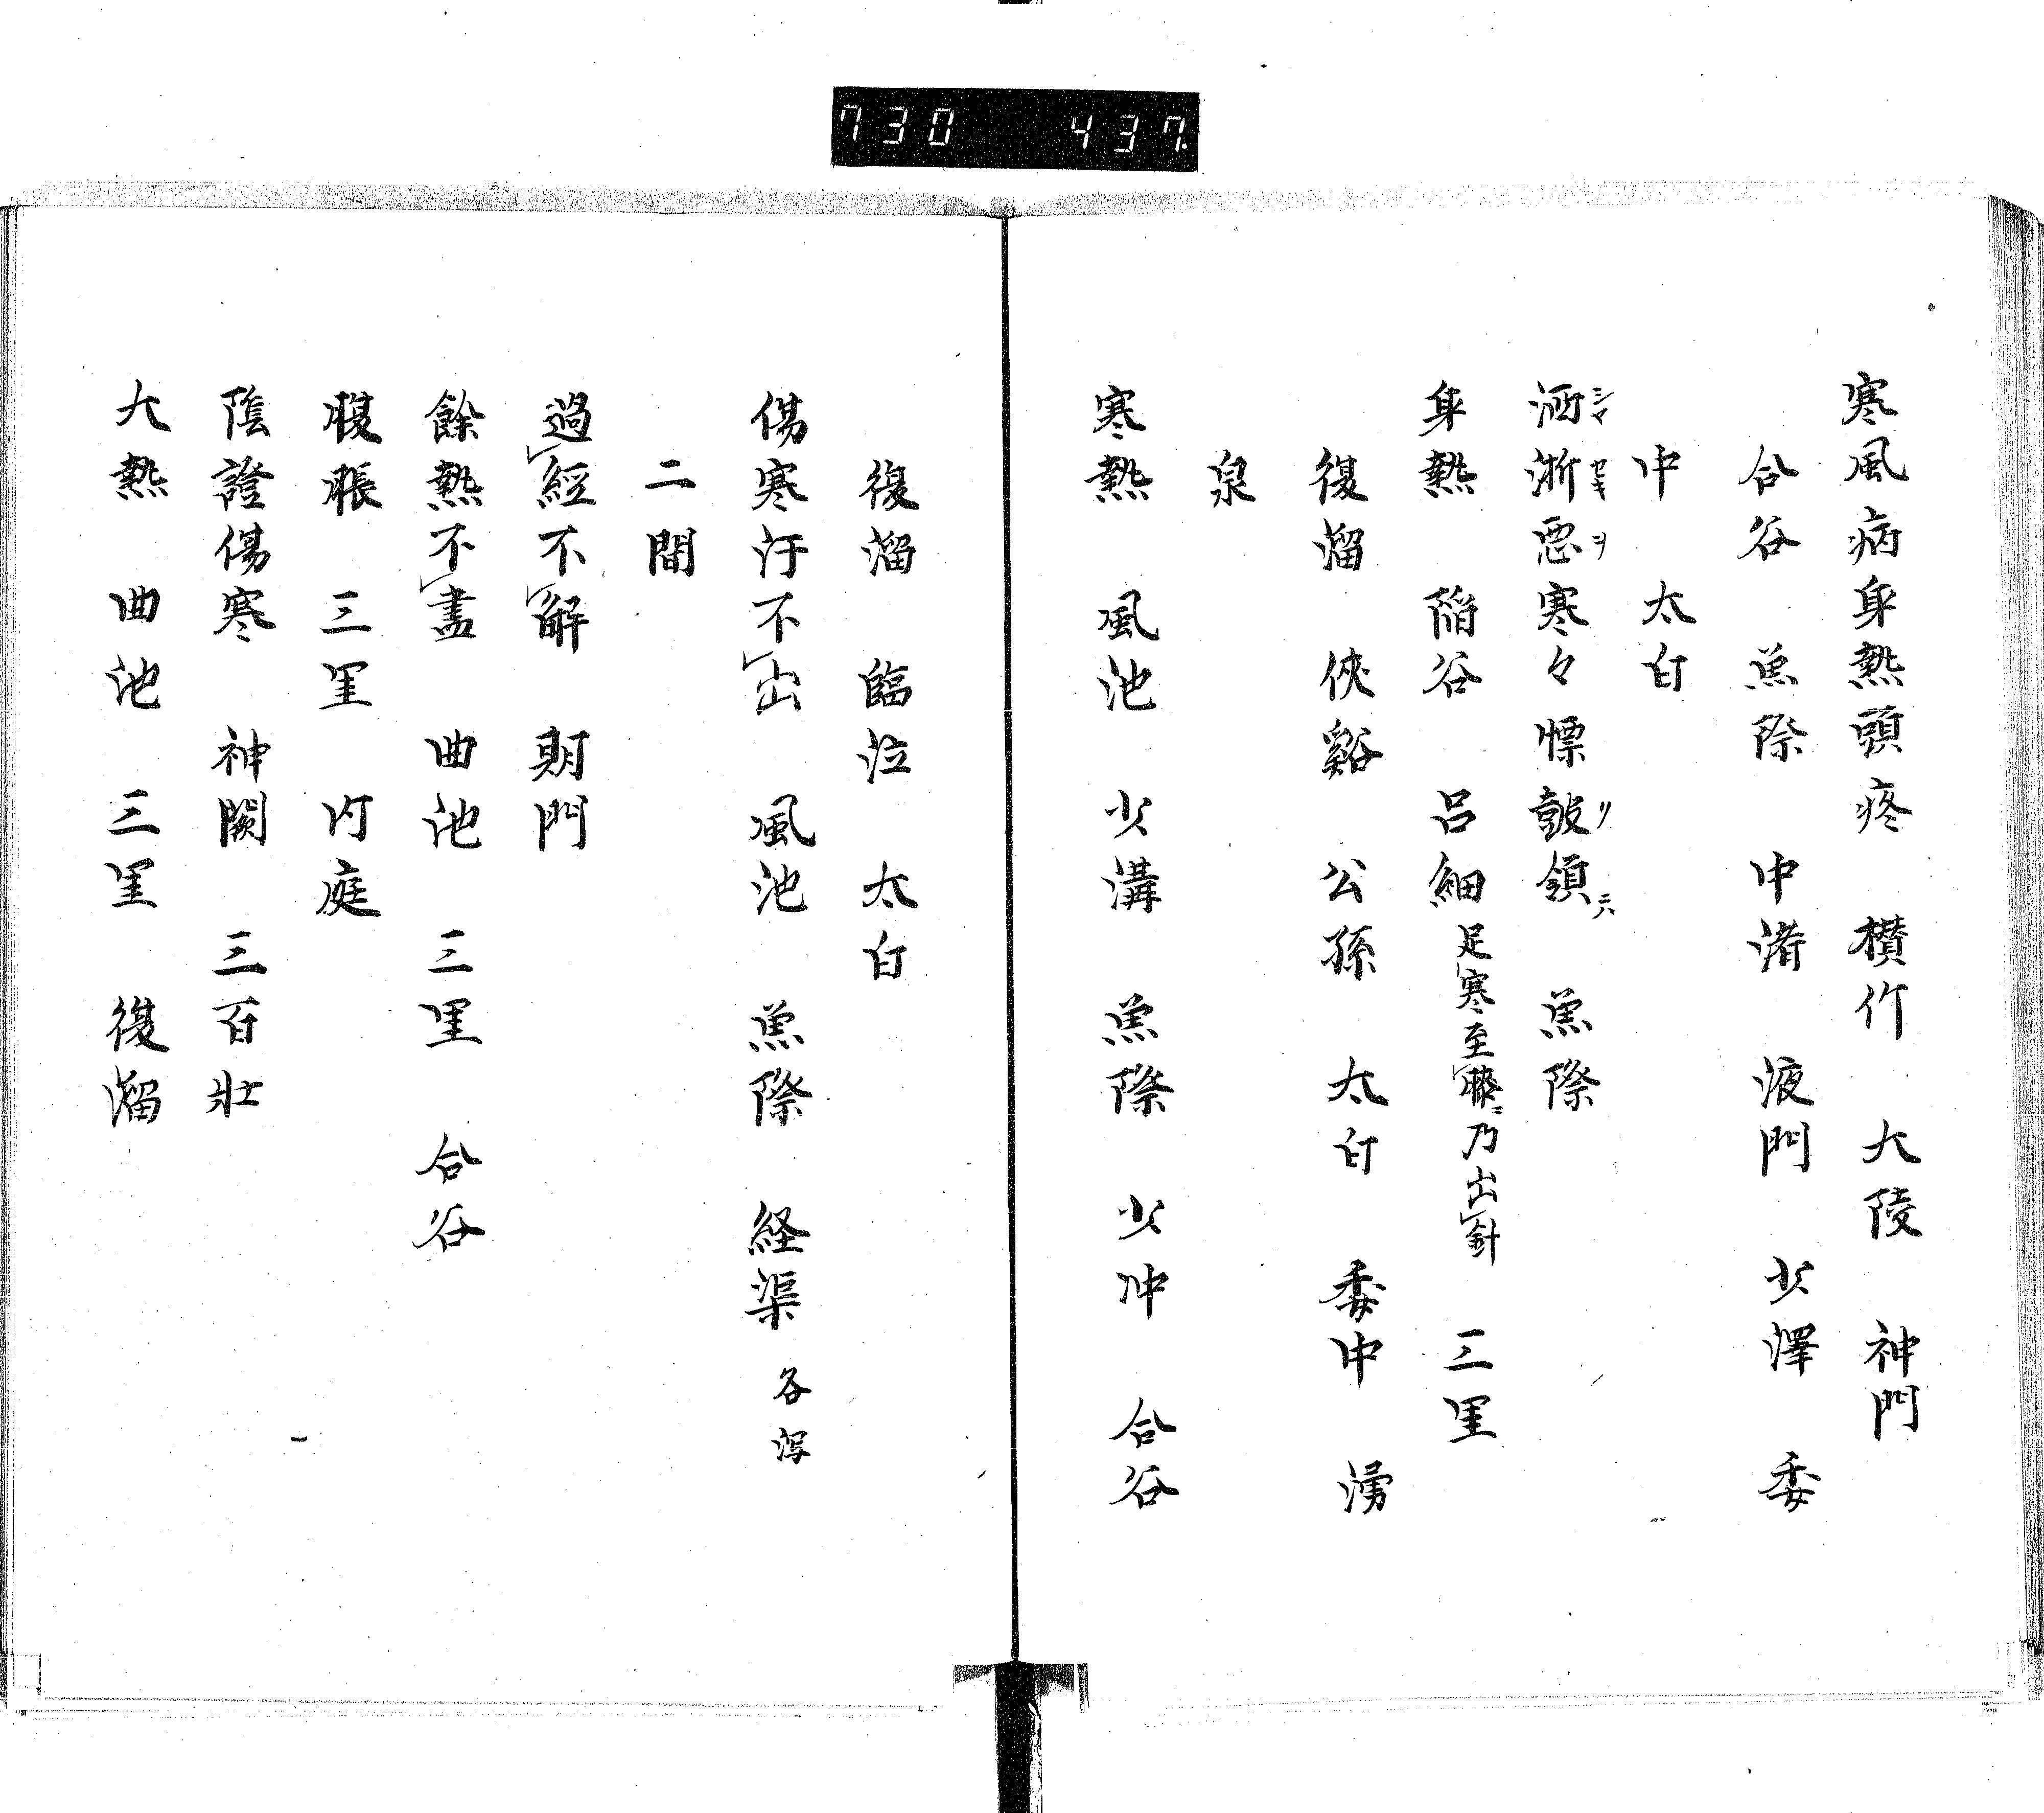 730 437
寒風病身熱頭疼 攅竹 大陵 神門
合谷 魚際 中渚 液門 少澤 委
中 太白
洒淅惡寒々慄皷頷 魚際
身熱 陥谷 呂細 足寒至膝乃出針 三里
復溜 侠谿 公孫 太白 委中 湧
泉
寒熱 風池 少溝 魚際 少冲 合谷
復溜 臨泣 太白
傷寒汗不出 風池 魚際 経渠 各泻
二間
過經不解 期門
餘熱不盡 曲池 三里 合谷
腹脹 三里 内庭
陰證傷寒 神闕 三百壮
大熱 曲池 三里 復溜